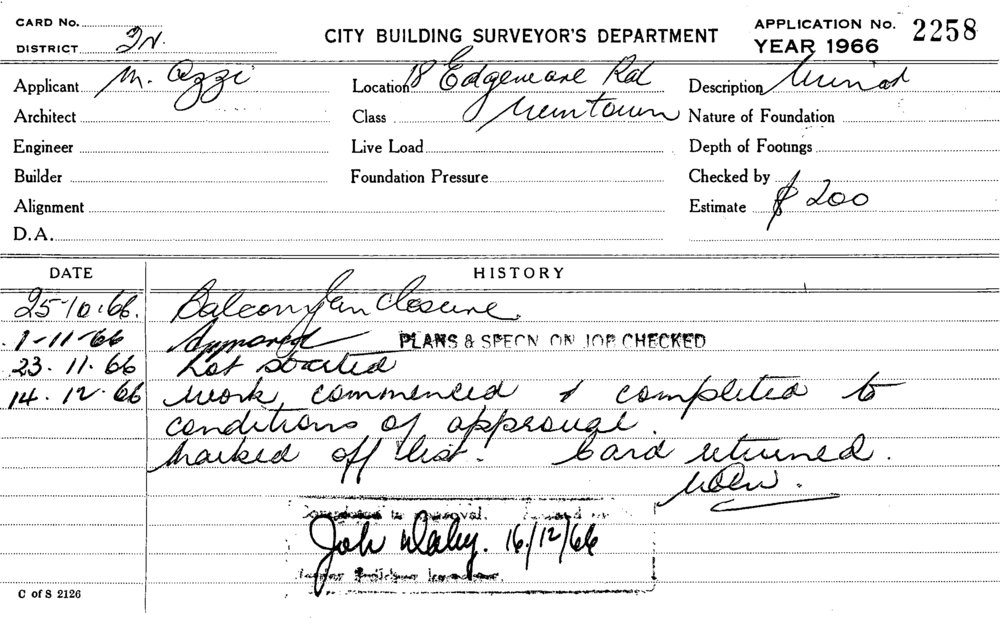 CARD No.
DISTRICT
CITY BUILDING SURVEYOR'S DEPARTMENT
APPLICATION No. 2258
YEAR 1966
Applicant M. Ozzi
Location 18 Edgeware Rd
Description
Architect
Class Newtown
Nature of Foundation
Engineer
Live Load
Depth of Footings
Builder
Foundation Pressure
Checked by
Alignment
Estimate $ 200
D.A.
DATE HISTORY
25-10-66. Balcony Enclosure
1-11-66 Approved PLANS & SPECN ON JOB CHECKED
23.11.66 Not started
14.12.66 work commenced & completed to
conditions of approval.
Marked off list. Card returned.
Completed to approval.
16/12/66
C of S 2126